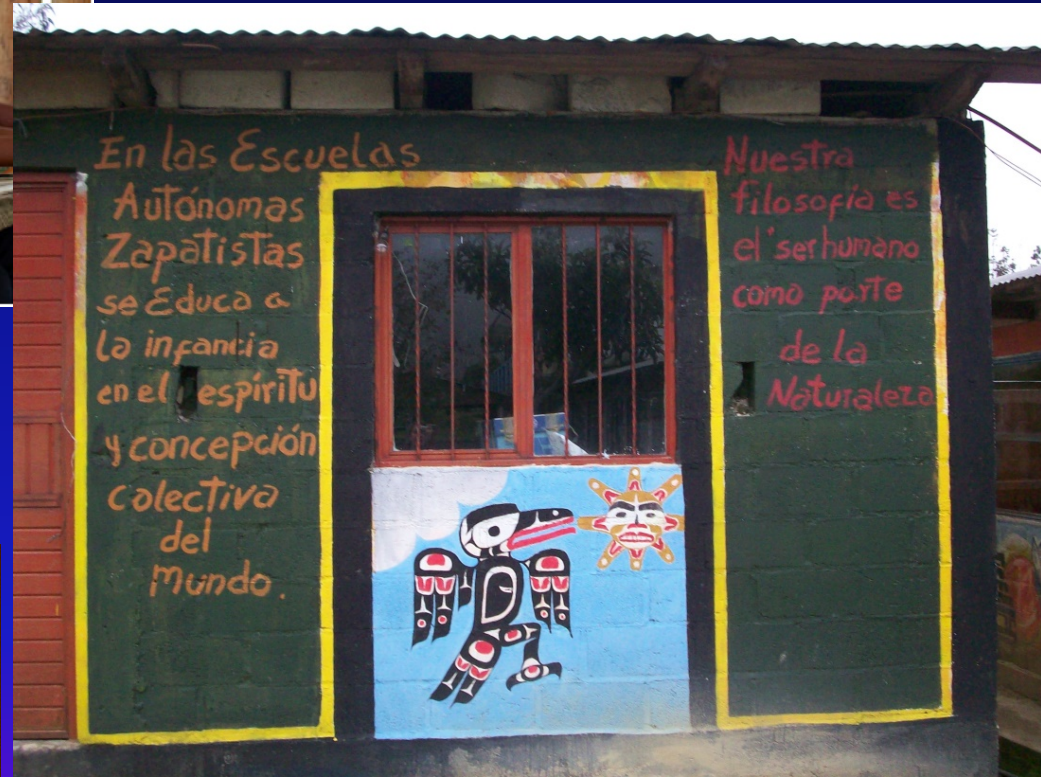 En las Escuelas
Autónomas
Zapatistas
se Educa a
la infancia
en el espíritu
y concepción
colectiva
del
Mundo.
Nuestra
filosofía es
el ser humano
como parte
de la
Naturaleza